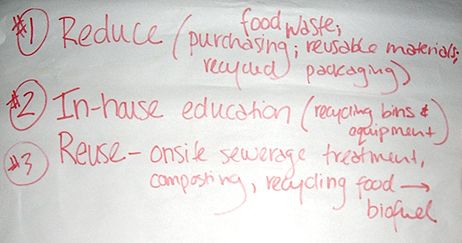 food waste;
#1 Reduce (purchasing; reusable materials;
recycled packaging)
#2 In-house education (recycling bins &
equipment)
#3 Reuse - onsite sewerage treatment,
composting, recycling food →
biofuel